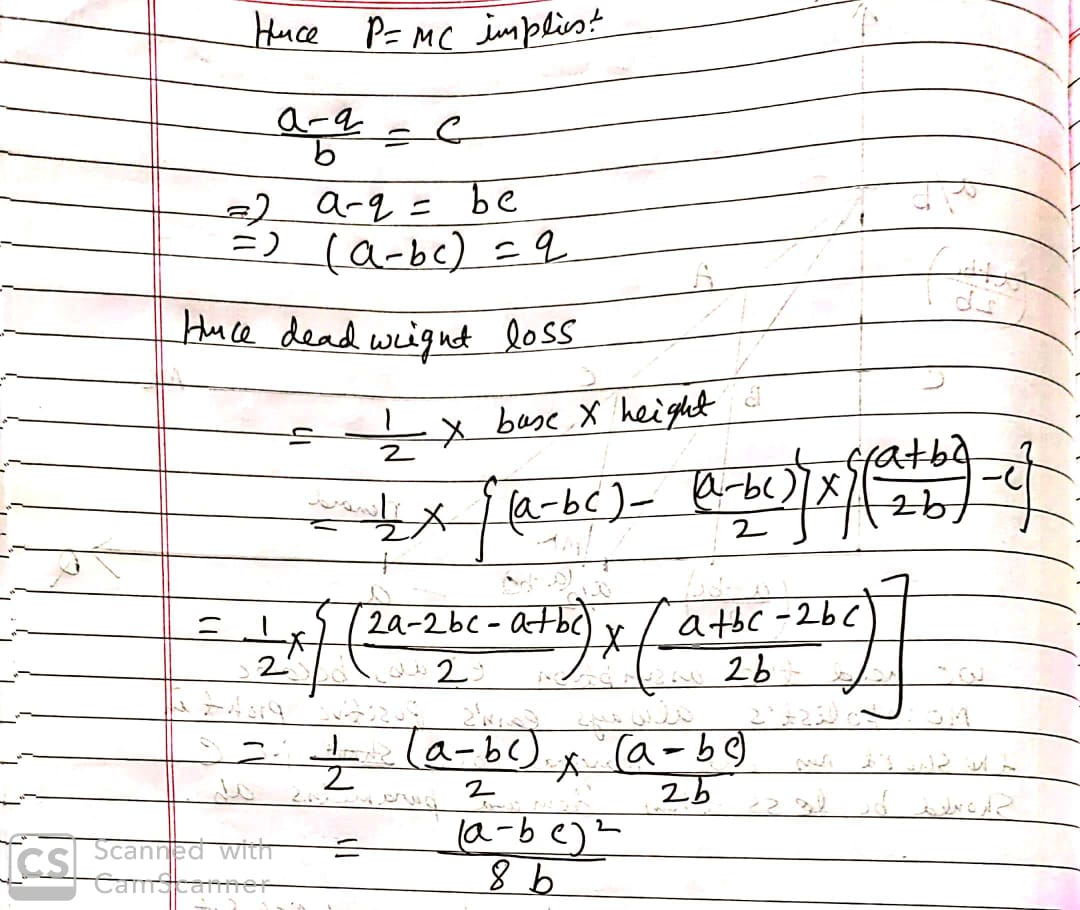 Hence P = MC implies:
a-q/b = c
=) a-q = bc
=) (a-bc) = q
Hence dead weight loss
= 1/2 x base x height
= 1/2 x {(a-bc) - (a-bc)/2} x {(a+bc/2b) - c}
= 1/2 x {(2a-2bc-a+bc/2) x (a+bc-2bc/2b)]
= 1/2 (a-bc)/2 x (a-bc)/2b
= (a-bc)²/8b
CS Scanned with
CamScanner